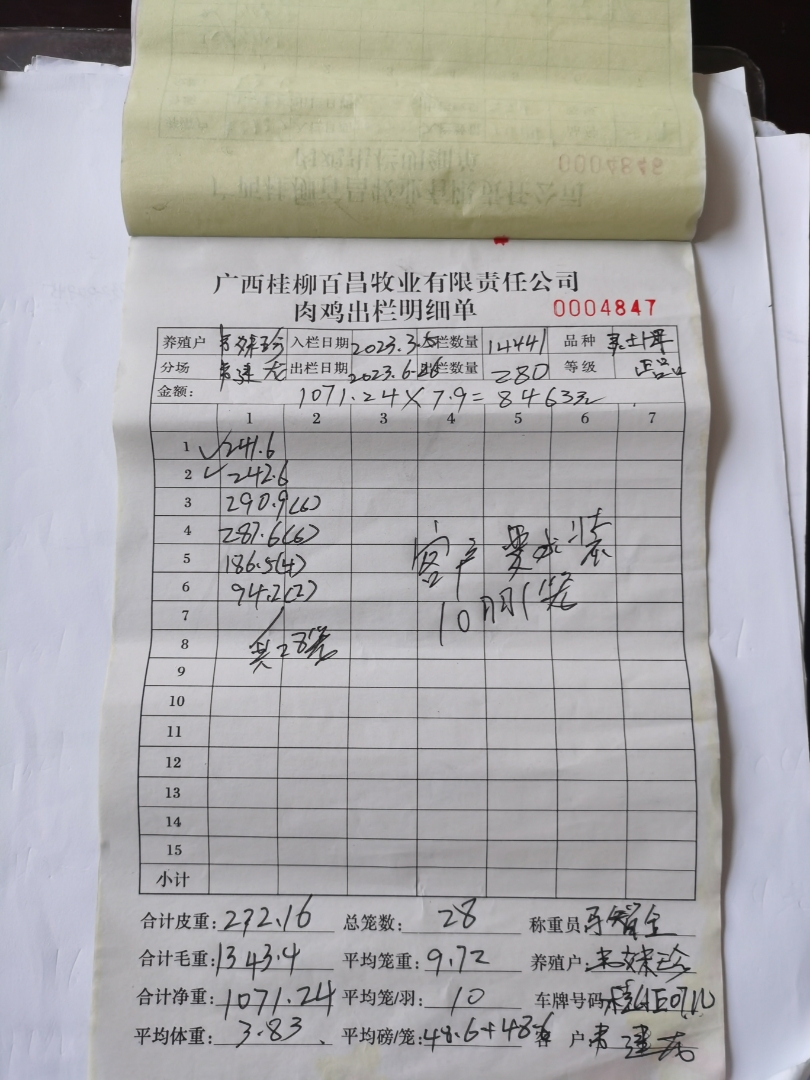 0004848
广西桂柳百昌牧业有限责任公司
肉鸡出栏明细单 0004847
养殖户 入栏日期 2023.3. 栏数量 14441 品种
分场 出栏日期 2023.6.26 栏数量 280 等级 正品
金额: 1071.24×7.9=8463元
1 2 3 4 5 6 7
1 ✓241.6
2 ✓242.6
3 290.9(6)
4 287.6(6)
5 186.5(4)
6 94.2(2)
客户要求装
10只1笼
7
8 共28笼
9
10
11
12
13
14
15
小计
合计皮重: 272.16 总笼数: 28 称重员
合计毛重: 1343.4 平均笼重: 9.72 养殖户:
合计净重: 1071.24 平均笼/羽: 10 车牌号码
平均体重: 3.83 平均磅/笼: 48.6+48.6 客户